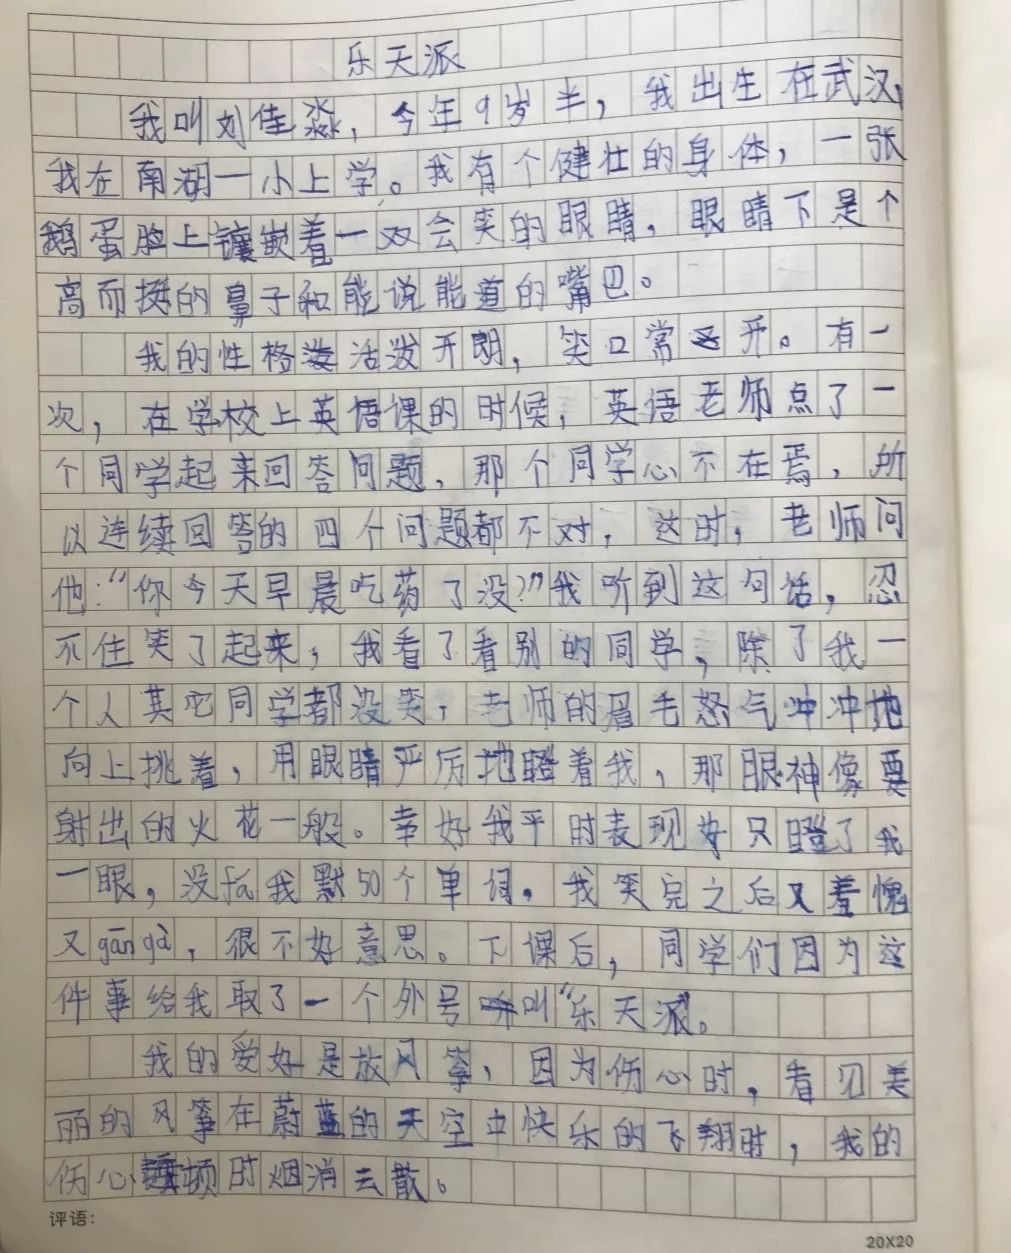 乐天派
我叫刘佳淼，今年9岁半，我出生在武汉，
我在南湖一小上学。我有个健壮的身体，一张
鹅蛋脸上镶嵌着一双会笑的眼睛，眼睛下是个
高而挺的鼻子和能说能道的嘴巴。
我的性格活泼开朗，笑口常开。有一
次，在学校上英语课的时候，英语老师点了一
个同学起来回答问题，那个同学心不在焉，所
以连续回答的四个问题都不对，这时，老师问
他：“你今天早晨吃药了没？”我听到这句话，忍
不住笑了起来，我看了看别的同学，除了我一
个人其它同学都没笑，老师的眉毛怒气冲冲地
向上挑着，用眼睛严厉地瞪着我，那眼神像要
射出的火花一般。幸好我平时表现好只瞪了我
一眼，没fa我默50个单词。我笑完之后又羞愧
又gān gà，很不好意思。下课后，同学们因为这
件事给我取了一个外号叫“乐天派”。
我的爱好是放风筝，因为伤心时，看见美
丽的风筝在蔚蓝的天空中快乐的飞翔时，我的
伤心顿时烟消云散。
评语：
20X20